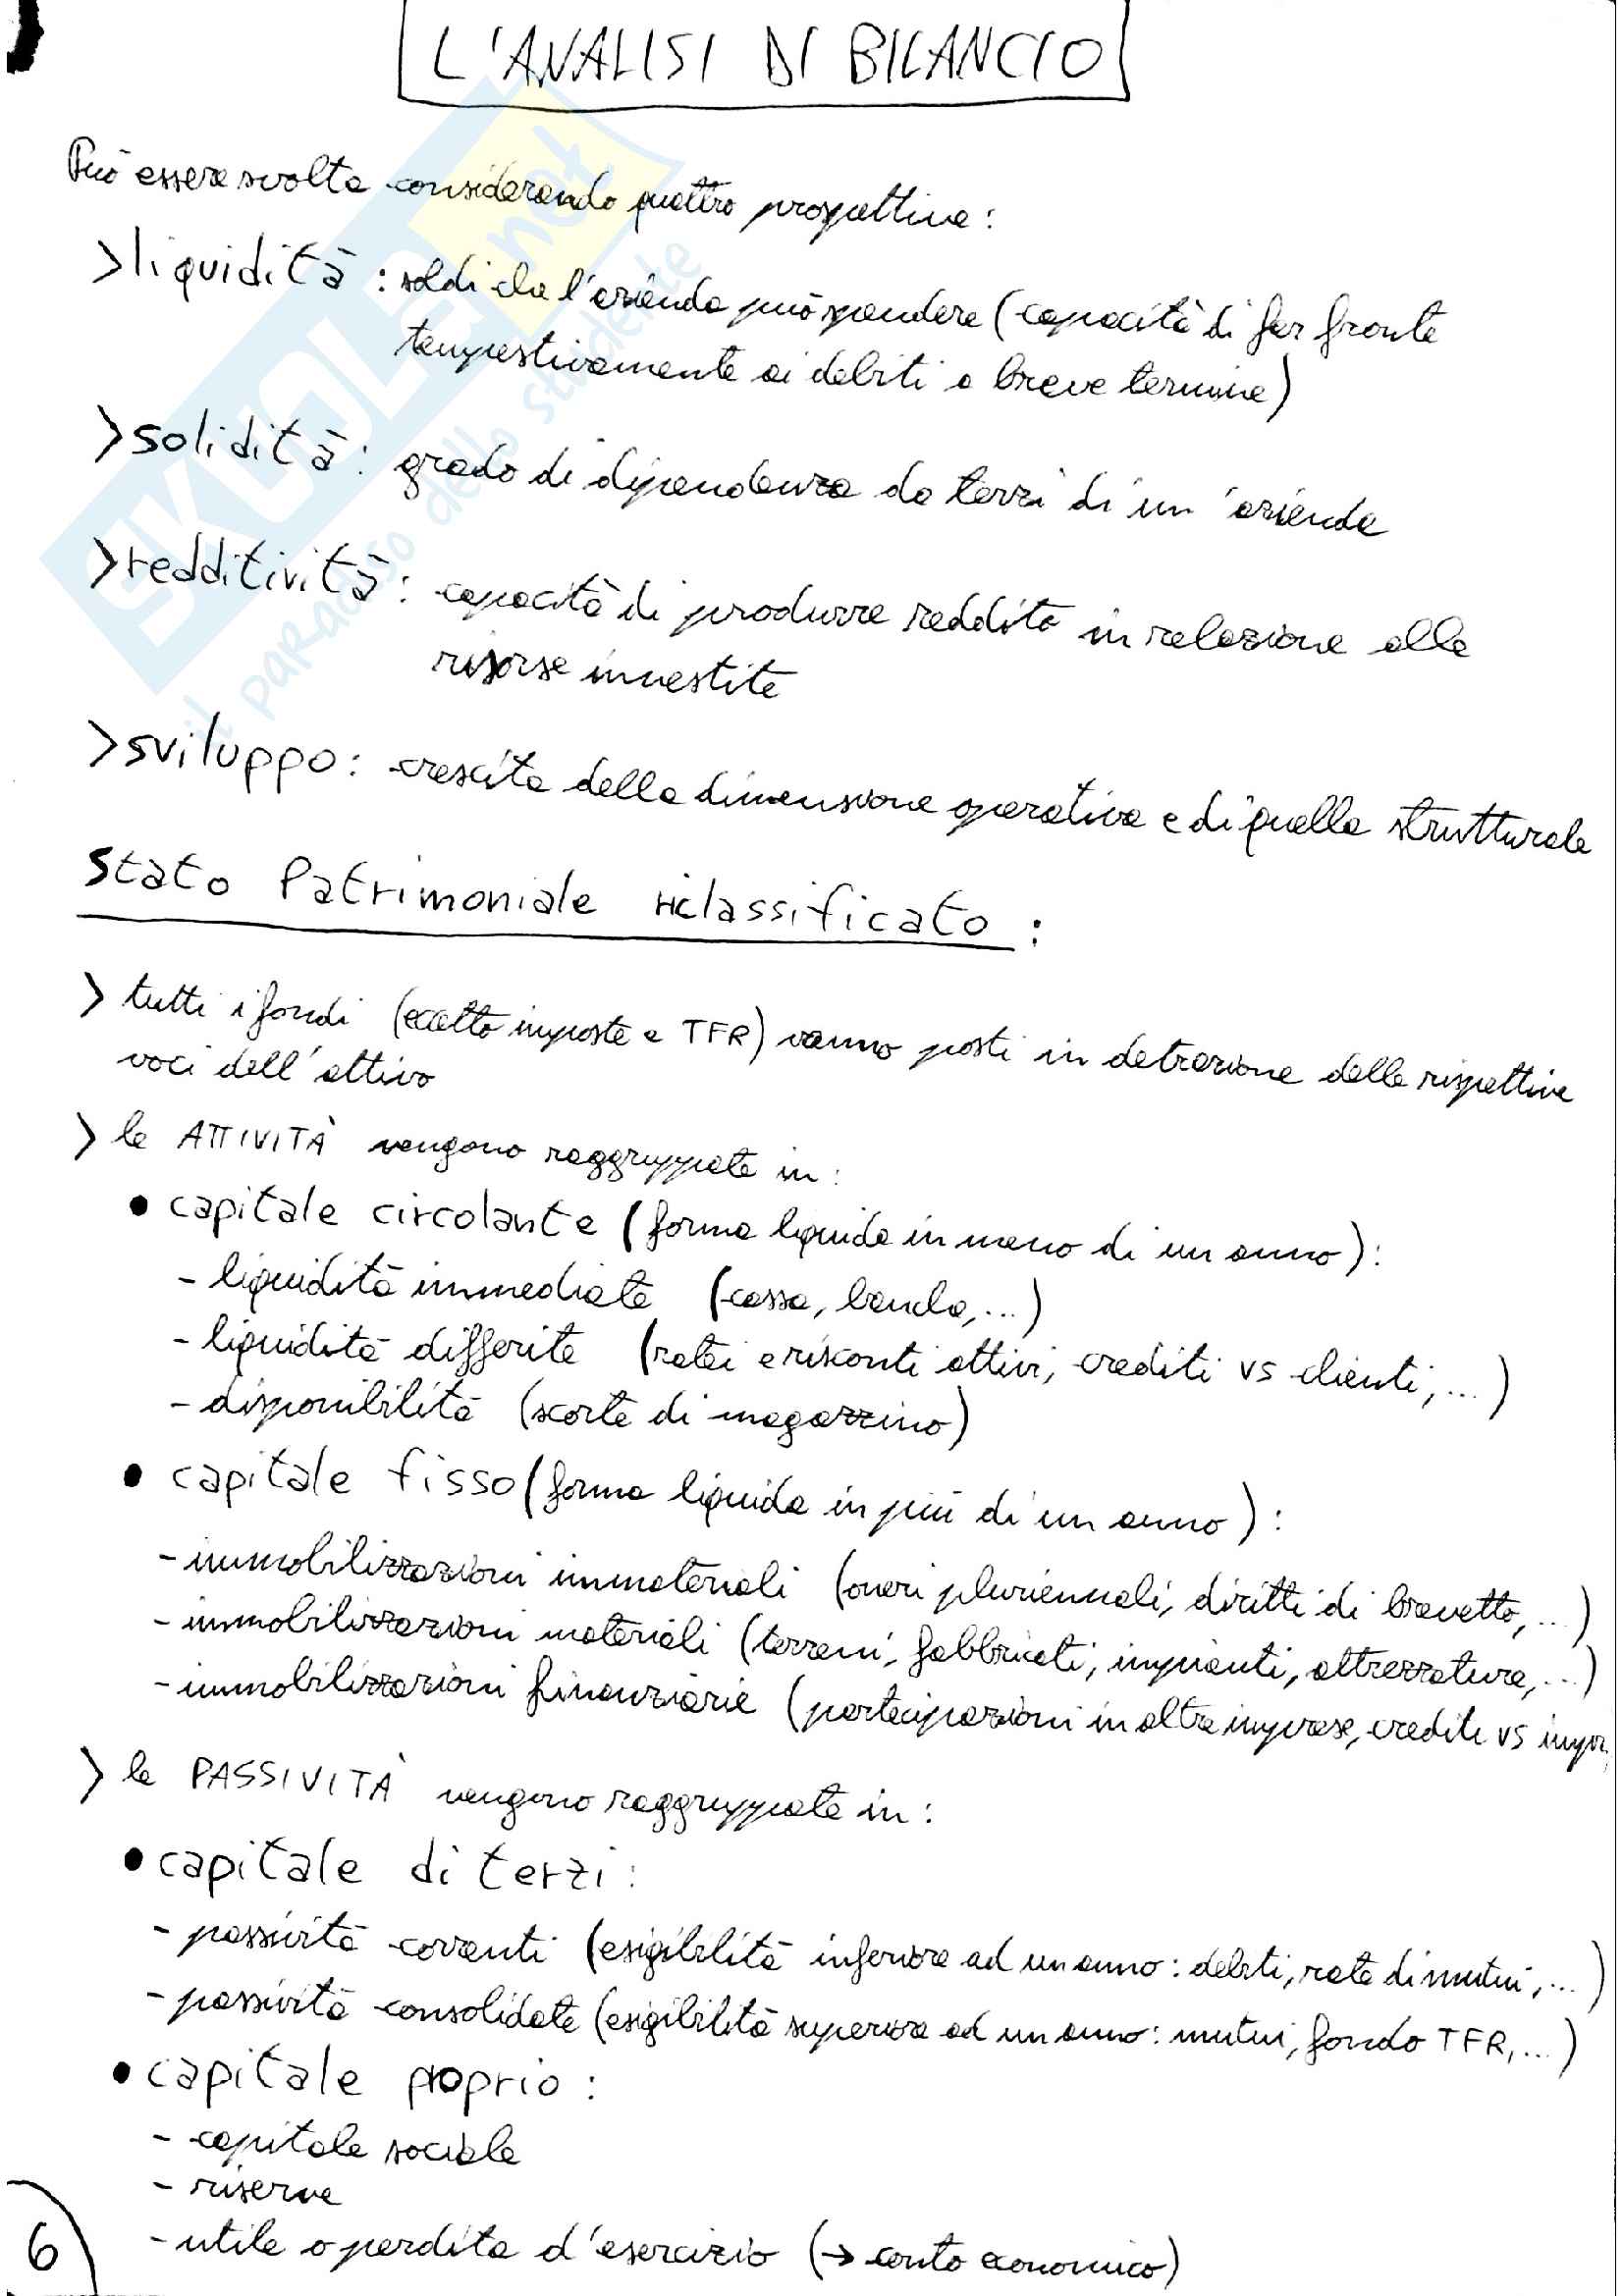 L'ANALISI DI BILANCIO
Può essere svolta considerando quattro prospettive:
>liquidità: soldi che l'azienda può spendere (capacità di far fronte
tempestivamente ai debiti a breve termine)
>solidità: grado di dipendenza da terzi di un'azienda
>redditività: capacità di produrre reddito in relazione alle
risorse investite
>sviluppo: crescita della dimensione operativa e di quella strutturale
Stato Patrimoniale riclassificato:
> tutti i fondi (eccetto imposte e TFR) vanno posti in detrazione delle rispettive
voci dell'attivo
> le ATTIVITÀ vengono raggruppate in:
• capitale circolante (forma liquida in meno di un anno):
- liquidità immediate (cassa, banca,...)
- liquidità differite (ratei e risconti attivi, crediti vs clienti,...)
- disponibilità (scorte di magazzino)
• capitale fisso (forma liquida in più di un anno):
- immobilizzazioni immateriali (oneri pluriennali, diritti di brevetto,...)
- immobilizzazioni materiali (terreni, fabbricati, impianti, attrezzature,...)
- immobilizzazioni finanziarie (partecipazioni in altre imprese, crediti vs impr
> le PASSIVITÀ vengono raggruppate in:
• capitale di terzi:
- passività correnti (esigibilità inferiore ad un anno: debiti, rate di mutui,...)
- passività consolidate (esigibilità superiore ad un anno: mutui, fondo TFR,...)
• capitale proprio:
- capitale sociale
- riserve
- utile o perdita d'esercizio (→ conto economico)
6
SKUOLA.net
il paradiso dello studente